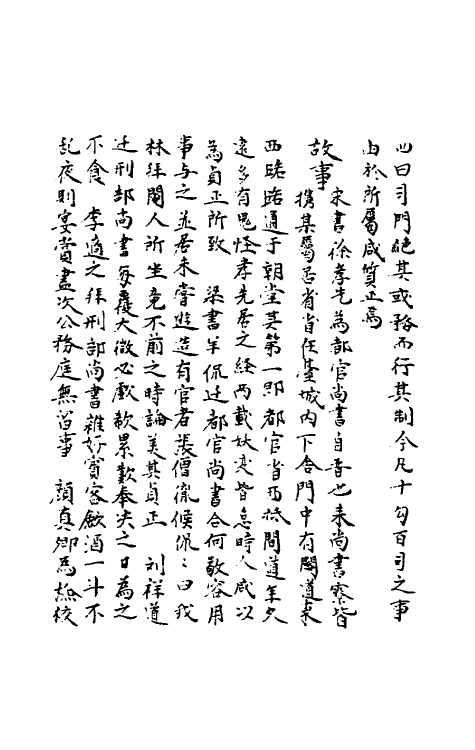 四曰司門總其或務而行其制令凡十勾百司之事
由於所屬咸質正焉
故事 宋書徐孝先為都官尚書自晉也来尚書寮皆
攜其屬居省省在臺城内下舍門中有閣道来
西跨路通于朝堂其第一即都官省西抵閣道年久
遠多有鬼怪孝先居之经两載妖变皆息時人咸以
為貞正所致 梁書羊侃迁都官尚書令何敬容用
事与之並居未嘗遊造有官者張僧胤候侃侃曰我
林非閹人所坐竟不前之時論美其貞正 刘祥道
迁刑部尚書每覆大獄必歔欷累歎奉决之日為之
不食 李適之拜刑部尚書雅好賓客飲酒一斗不
乱夜則宴賞晝决公務庭無留事 顔真卿為檢校